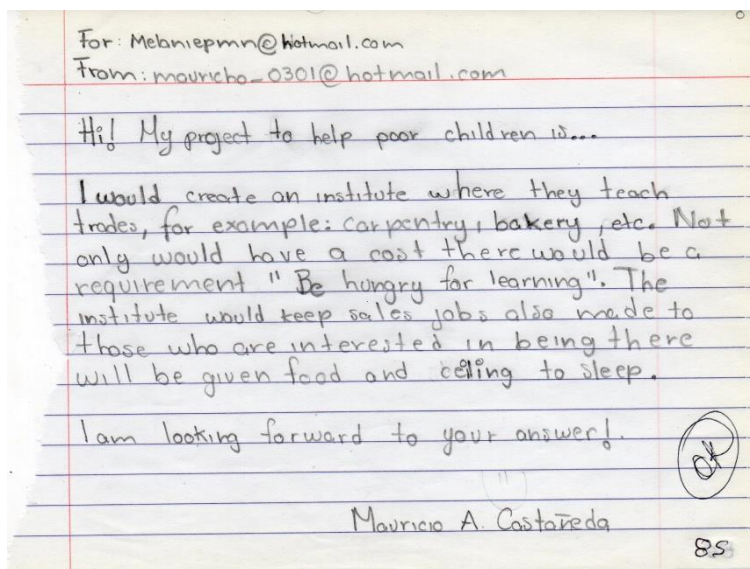 For: Melaniepmn@hotmail.com
From: mauricho_0301@hotmail.com
Hi! My project to help poor children is...
I would create an institute where they teach
trades, for example: carpentry, bakery, etc. Not
only would have a cost there would be a
requirement "Be hungry for learning". The
institute would keep sales jobs also made to
those who are interested in being there
will be given food and ceiling to sleep.
I am looking forward to your answer!.
OK
Mauricio A. Castañeda
85